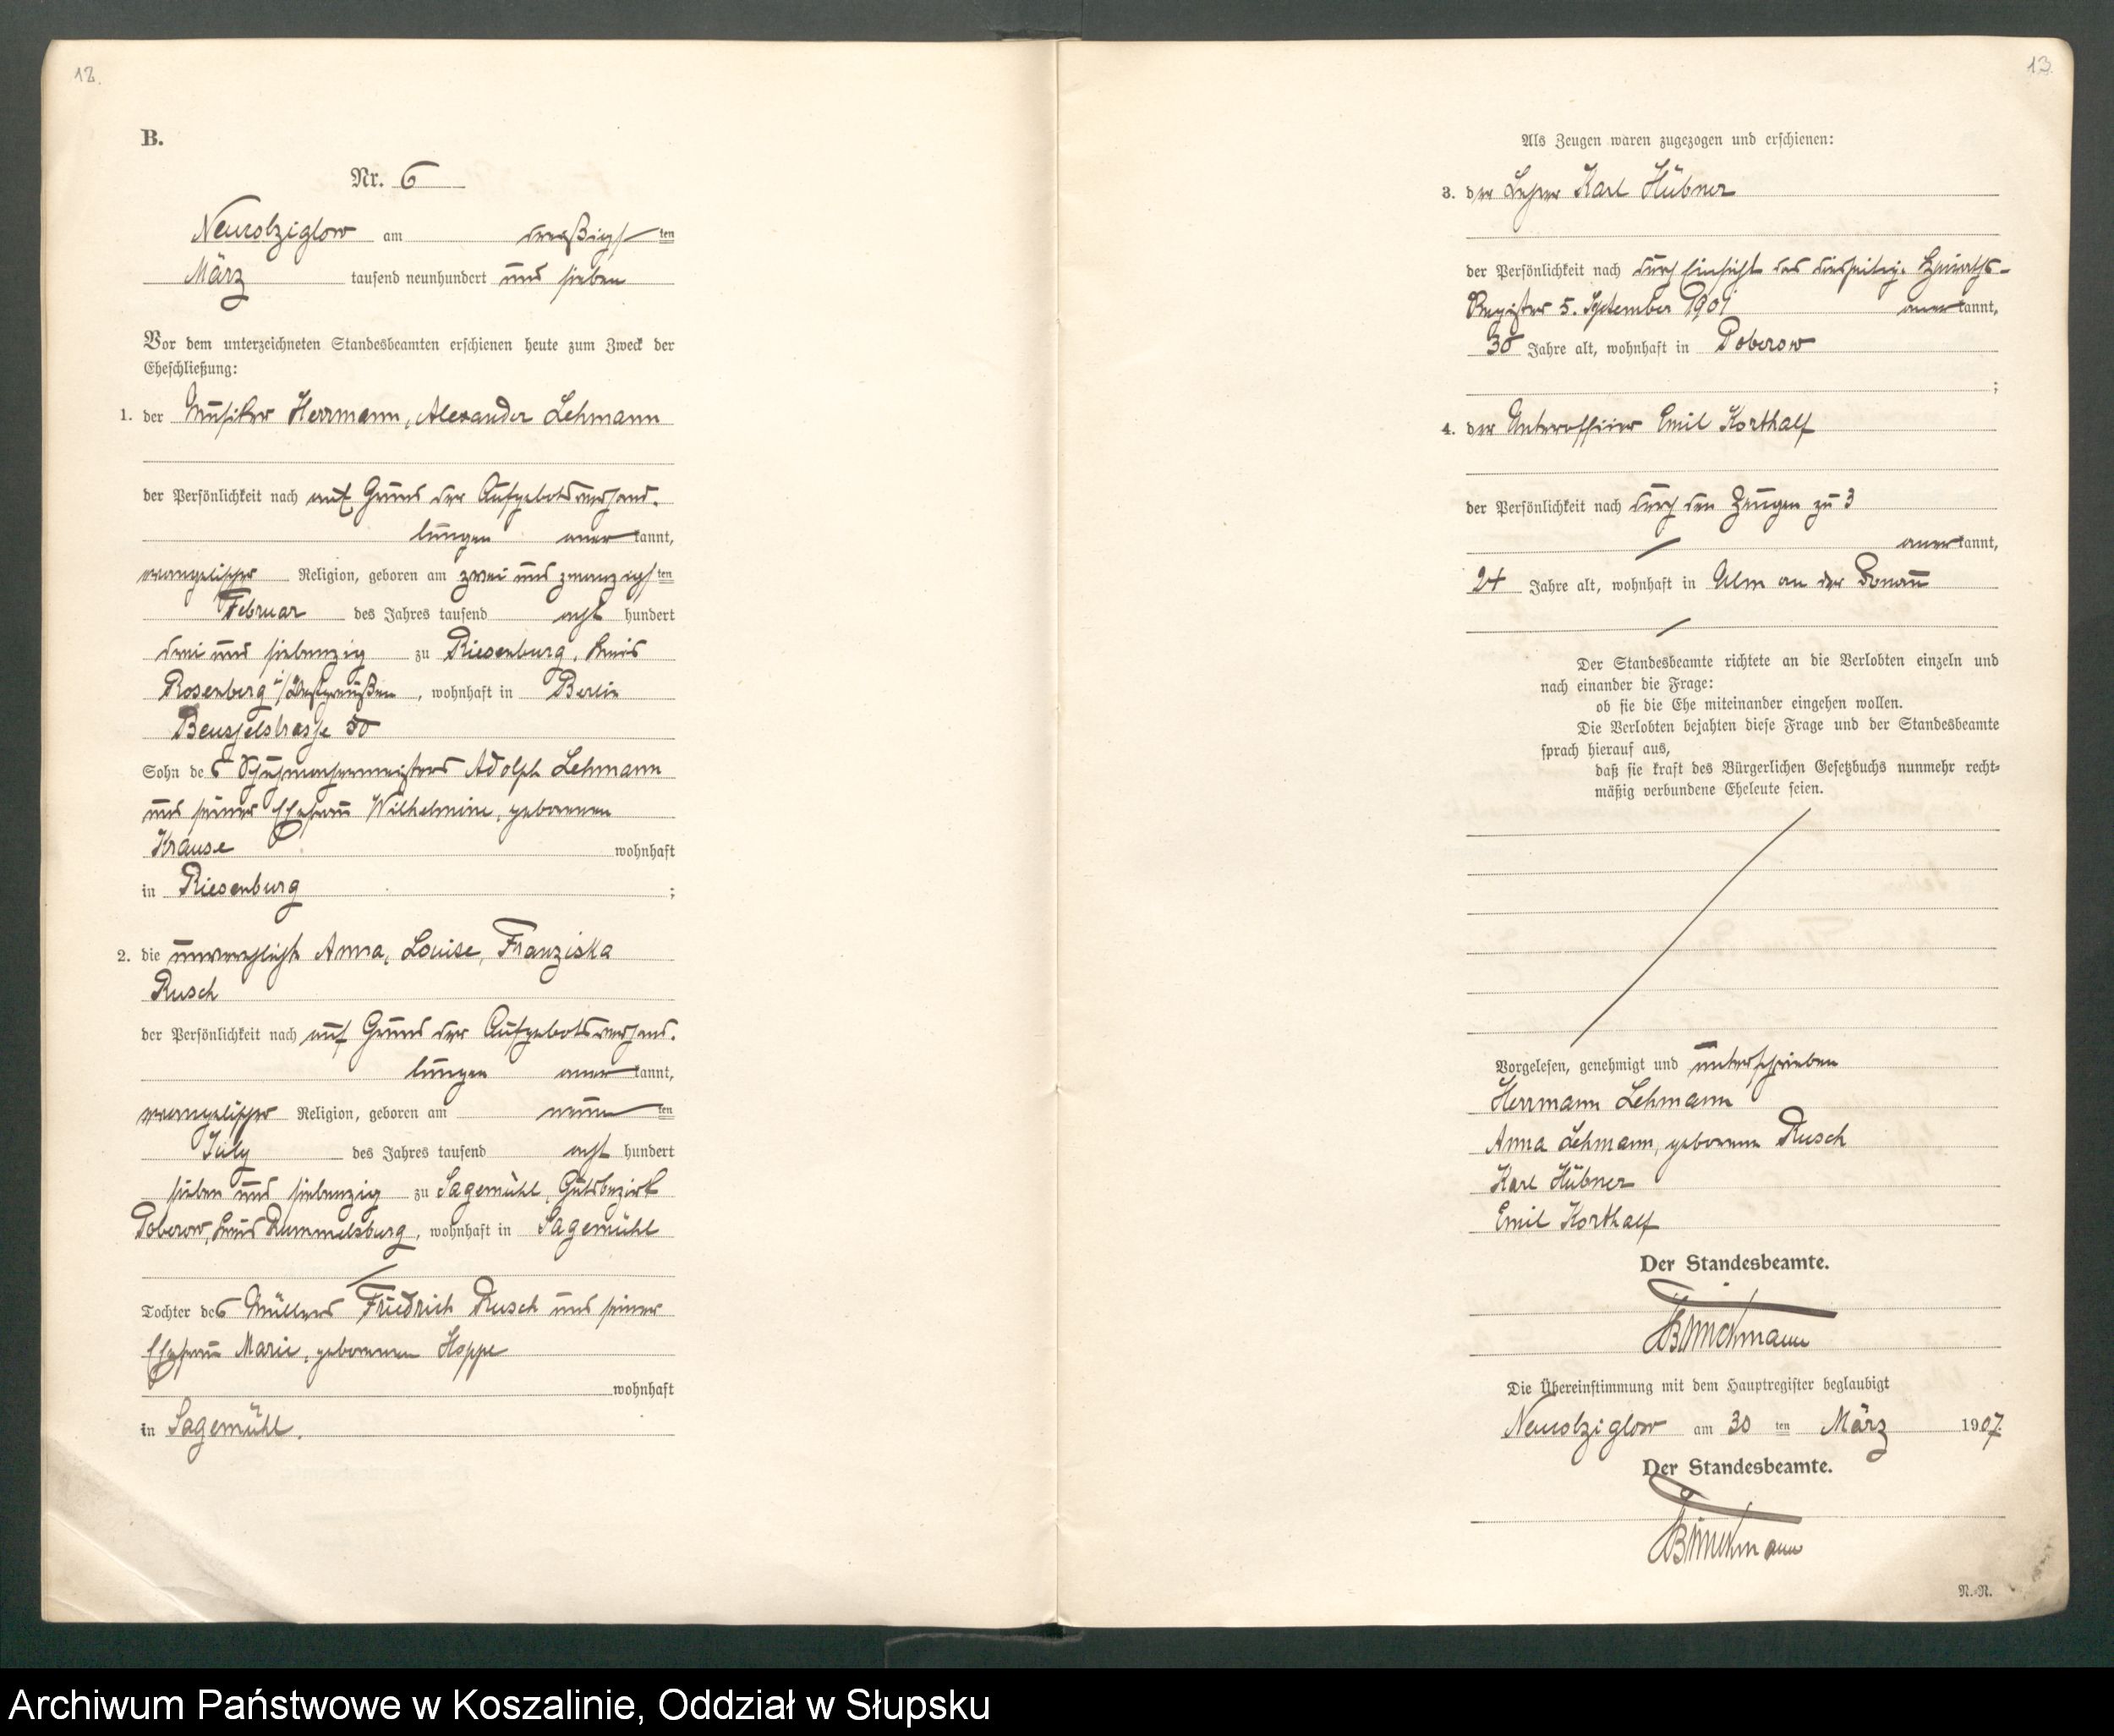 12.
B.
Nr. 6
Neukolziglow am dreißigsten
März tausend neunhundert und sieben
Vor dem unterzeichneten Standesbeamten erschienen heute zum Zweck der
Eheschließung:
1. der Musiker Herrmann, Alexander Lehmann
der Persönlichkeit nach auf Grund der Aufgebotsverhand-
lungen anerkannt,
evangelischer Religion, geboren am zwei und zwanzigsten
Februar des Jahres tausend acht hundert
drei und siebenzig zu Riesenburg, Kreis
Rosenberg i/Westpreußen, wohnhaft in Berlin
Beusselstrasse 50
Sohn des Schuhmachermeisters Adolph Lehmann
und seiner Ehefrau Wilhelmine, geborenen
Krause wohnhaft
in Riesenburg ;
2. die unverehelichte Anna, Louise, Franziska
Rusch
der Persönlichkeit nach auf Grund der Aufgebotsverhand-
lungen anerkannt,
evangelischer Religion, geboren am neunten
July des Jahres tausend acht hundert
sieben und siebenzig zu Sagemühl, Gutsbezirk
Poberow, Kreis Rummelsburg, wohnhaft in Sagemühl
Tochter des Müllers Friedrich Rusch und seiner
Ehefrau Marie, geborenen Hoppe
wohnhaft
in Sagemühl.
13.
Als Zeugen waren zugezogen und erschienen:
3. der Lehrer Karl Hübner
der Persönlichkeit nach durch Einsicht des diesseitig. Heirats-
Register 5. September 1901 anerkannt,
30 Jahre alt, wohnhaft in Poberow
;
4. der Unteroffizier Emil Korthalf
der Persönlichkeit nach durch den Zeugen zu 3
anerkannt,
24 Jahre alt, wohnhaft in Ulm an der Donau
Der Standesbeamte richtete an die Verlobten einzeln und
nach einander die Frage:
ob sie die Ehe miteinander eingehen wollen.
Die Verlobten bejahten diese Frage und der Standesbeamte
sprach hierauf aus,
daß sie kraft des Bürgerlichen Gesetzbuchs nunmehr recht-
mäßig verbundene Eheleute seien.
Vorgelesen, genehmigt und unterschrieben
Herrmann Lehmann
Anna Lehmann, geborene Rusch
Karl Hübner
Emil Korthalf
Der Standesbeamte.
Die Übereinstimmung mit dem Hauptregister beglaubigt
Neukolziglow am 30 ten März 1907.
Der Standesbeamte.
N.-N.
Archiwum Państwowe w Koszalinie, Oddział w Słupsku